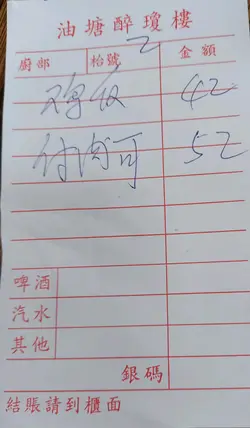 油塘醉瓊樓
廚部 枱號 2 金額
42
52
啤酒
汽水
其他
銀碼
結賬請到櫃面